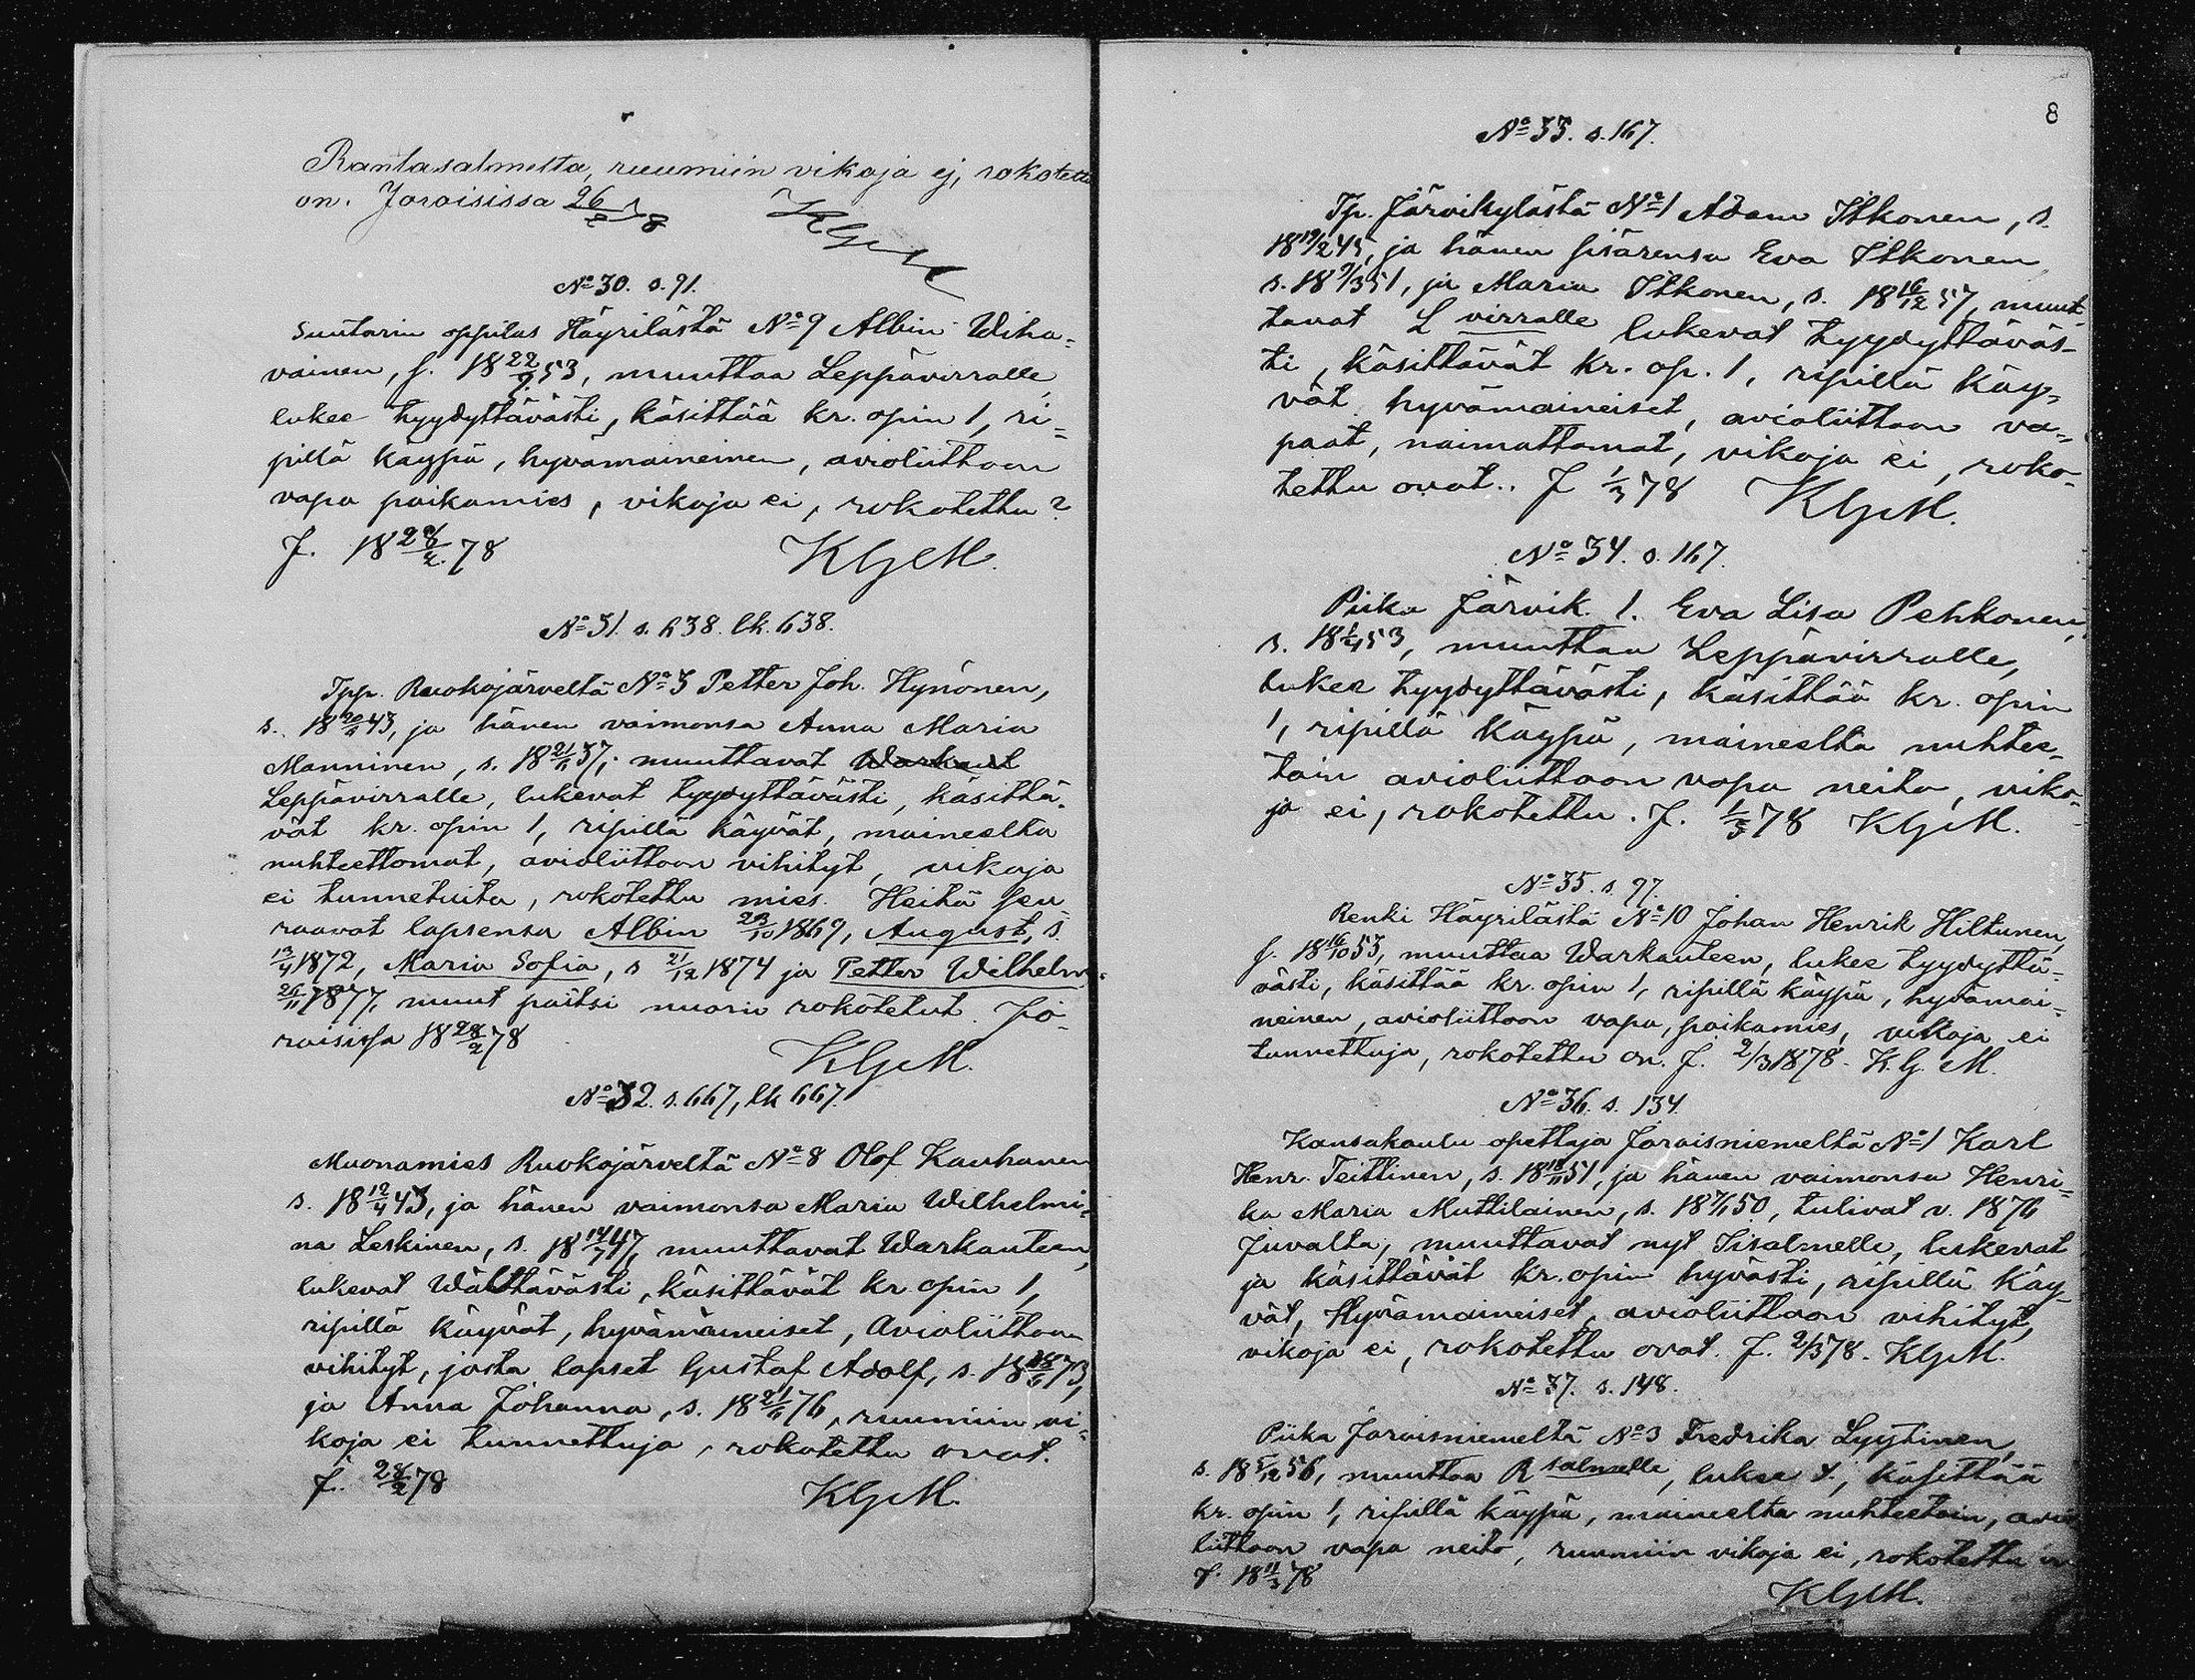 Rantasalmelta, ruumiin vikoja ej, rokotettu
on. Joroisissa 26/2 78 KGM
No 30. s. 91.
Suutarin oppilas Häyrilästä No 9 Albin Wiha=
vainen, s. 18 22/9 53, muuttaa Leppävirralle,
lukee tyydyttävästi, käsittää kr. opin 1, ri=
pillä käypä, hyvämaineinen, avioliittoon
vapa poikamies, vikoja ei, rokotettu?
J. 18 28/2 78 KGM.
No 31. s. 638. lk. 638.
Tpp. Ruokojärveltä No 3 Petter Joh. Hynönen,
s. 18 20/6 43, ja hänen vaimonsa Anna Maria
Manninen, s. 18 21/11 37, muuttavat Warkaut
Leppävirralle, lukevat tyydyttävästi, käsittä=
vät kr. opin 1, ripillä käyvät, maineelta
nuhteettomat, avioliittoon vihityt, vikoja
ei tunnetuita, rokotettu mies. Heitä seu
raavat lapsensa Albin 23/10 1869, August, s.
13/4 1872, Maria Sofia, s 21/12 1874 ja Petter Wilhelm
26/11 1877, muut paitsi nuorin rokotetut. Jo=
roisissa 18 28/2 78
KGM.
No 32. s. 667, lk 667.
Muonamies Ruokojärveltä No 8 Olof Kauhanen
s. 18 12/4 43, ja hänen vaimonsa Maria Wilhelmi=
na Leskinen, s. 18 14/7 47, muuttavat Warkauteen,
lukevat Wälttävästi, käsittävät kr opin 1,
ripillä käyvät, hyvämaineiset, Avioliittoon
vihityt, josta lapset Gustaf Adolf, s. 73,
ja Anna Johanna, s. 18 21/6 76, ruumiin vi=
koja ei tunnettuja, rokotettu ovat.
J. 28/2 78 KGM.
8
No 33. s. 167.
Tp. Järvikylästä No 1 Adam Itkonen, s.
18 19/2 45, ja hänen sisärensa Eva Itkonen
s. 18 9/3 51, ja Maria Itkonen, s. 18 16/12 57, muut=
tavat L virralle lukevat tyydyttäväs=
ti, käsittävät kr. op. 1, ripillä käy=
vät, hyvämaineiset, avioliittoon va=
paat, naimattomat, vikoja ei, roko=
tettu ovat.. J 1/3 78 KGM.
No 34. s. 167.
Piika Järvik. 1. Eva Lisa Pehkonen,
s. 18 1/4 53, muuttaa Leppävirralle,
lukee tyydyttävästi, käsittää kr. opin
1, ripillä käypä, maineelta nuhtee=
toin avioliittoon vapa neito, viko=
ja ei, rokotettu. J. 1/3 78 KGM.
No 35. s. 97.
Renki Häyrilästä No 10 Johan Henrik Hiltunen,
s. 18 16/10 53, muuttaa Warkauteen, lukee tyydyttä=
västi, käsittää kr. opin 1, ripillä käypä, hyvämai=
neinen, avioliittoon vapa, poikamies, vikoja ei
tunnettuja, rokotettu on. J. 2/3 1878. K. G. M.
No 36. s. 134.
Kansakoulu opettaja Joroisniemeltä No 1 Karl
Henr. Teittinen, s. 18 18/11 51, ja hänen vaimonsa Henri=
ka Maria Muttilainen, s. 18 7/1 50, tulivat v. 1876
Juvalta, muuttavat nyt Iisalmelle, lukevat
ja käsittävät kr. opin hyvästi, ripillä käy=
vät, Hyvämaineiset, avioliittoon vihityt,
vikoja ei, rokotettu ovat. J. 2/3 78. KGM.
No 37. s. 148.
Piika Joroisniemeltä No 3 Fredrika Lyytinen,
s. 18 5/12 56, muuttaa R salmelle, lukee t., käsittää
kr. opin 1, ripillä käypä, maineelta nuhteetoin, avio
liittoon vapa neito, ruumiin vikoja ei, rokotettu on
J. 18 11/3 78
KGM.